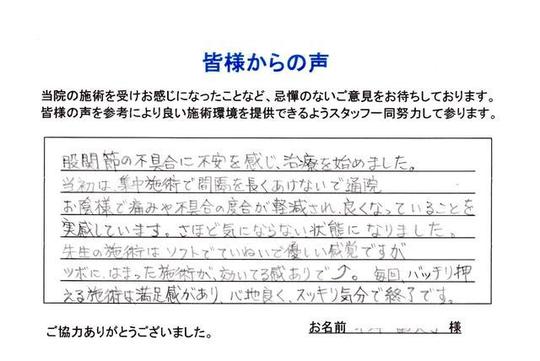 皆様からの声
当院の施術を受けお感じになったことなど、忌憚のないご意見をお待ちしております。
皆様の声を参考により良い施術環境を提供できるようスタッフ一同努力して参ります。
股関節の不具合に不安を感じ、治療を始めました。
当初は、集中施術で間隔を長くあけないで通院
お陰様で痛みや不具合の度合が軽減され、良くなっていることを
実感しています。さほど気にならない状態になりました。
先生の施術はソフトでていねいで優しい感覚ですが
ツボに、はまった施術が、効いてる感ありで⤴。毎回、バッチリ押
える施術は満足感があり、心地良く、スッキリ気分で終了です。
ご協力ありがとうございました。
お名前 様